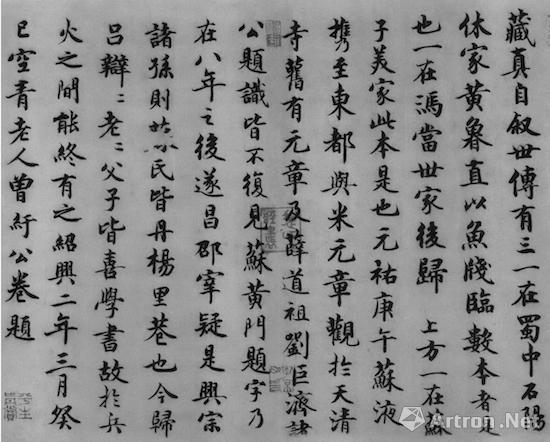 藏真自叙世傳有三一在蜀中石陽
休家黃魯直以魚牋臨數本者是
也一在馮當世家後歸 上方一在蘇
子美家此本是也元祐庚午蘇液
攜至東都與米元章觀於天清
寺舊有元章及薛道祖劉巨濟諸
公題識皆不復見蘇黃門題字乃
在八年之後遂昌邵宰疑是興宗
諸孫則蘇氏皆丹楊里巷也今歸
呂辯〻老〻父子皆喜學書故於兵
火之間能終有之紹興二年三月癸
巳空青老人曾紆公卷題
Artron.Net